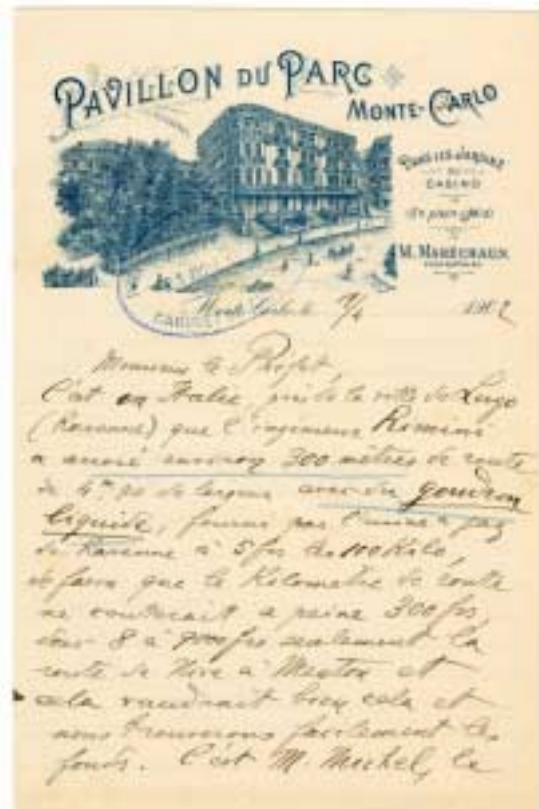 PAVILLON DU PARC
MONTE-CARLO
DANS LES JARDINS
DU
CASINO
M. MARÉCHAUX
CABINET
Monte Carlo le 1902
Monsieur le Préfet,
C'est en Italie, près de la ville de Lugo
(Ravenne) que l'ingénieur Rimini
a environ 300 mètres de route
de largeur avec du goudron
liquide, fourni par l'usine à gaz
de Ravenne à 5 frs les 100 Kilo,
de façon que le Kilomètre de route
ne couterait à peine 300 frs,
8 à seulement la
route de Nice à Menton et
cela vaudrait bien cela et
nous trouverons facilement les
fonds. C'est M. Michel, le